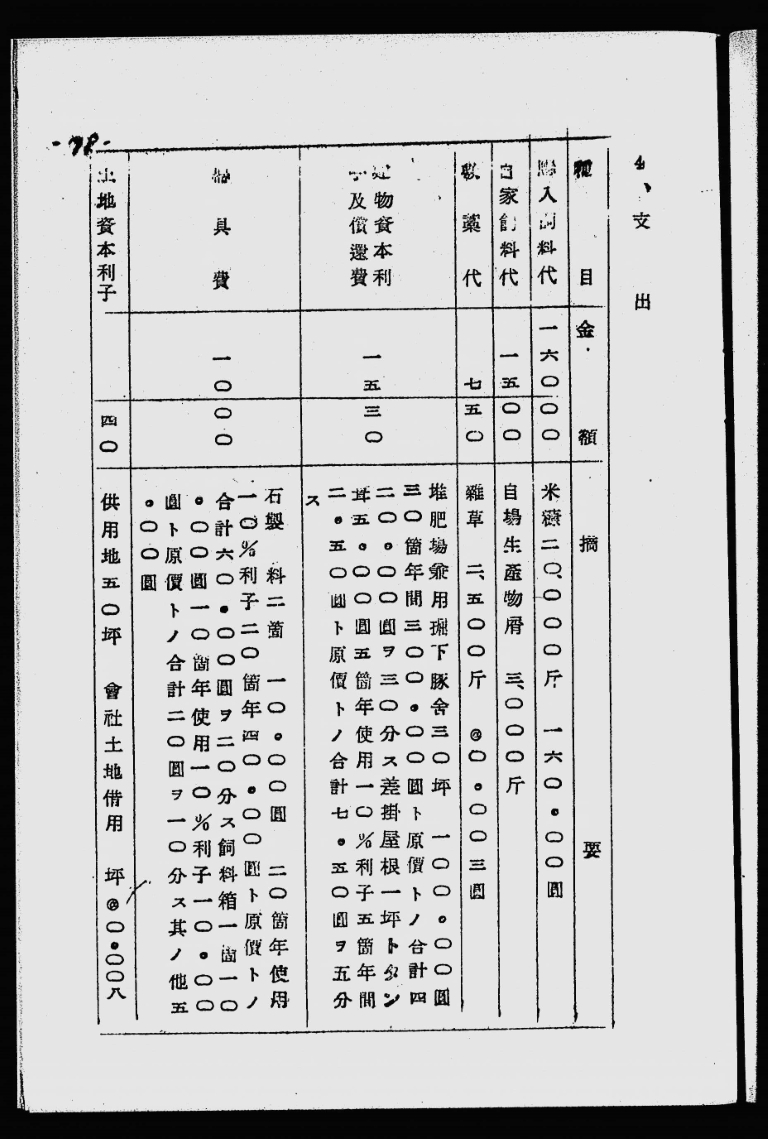 4、支出
種目 金額 摘要
購入飼料代 一六〇〇〇 米糠二〇、〇〇〇斤 一六〇。〇〇圓
自家飼料代 一五〇〇 自場生產物屑 三、〇〇〇斤
敷藁代 七五〇 雜草 二、五〇〇斤 @〇。〇〇三圓
建物資本利
子及償還費 一五三〇
堆肥場兼用 下豚舍三〇坪 一〇〇。〇〇圓
三〇箇年間三〇〇。〇〇圓ト原價トノ合計四
二〇。〇〇圓ヲ三〇分ス差掛屋根一坪トタン
五。〇〇圓五箇年使用一〇%利子五箇年間
二。五〇圓ト原價トノ合計七。五〇圓ヲ五分
ス
具費 一〇〇〇
石製 料二箇 一〇。〇〇圓 二〇箇年使用
一〇%利子二〇箇年四〇。〇〇圓ト原價トノ
合計六〇。〇〇圓ヲ二〇分ス飼料箱一箇一〇
。〇〇圓一〇箇年使用一〇%利子一〇。〇〇
圓ト原價トノ合計二〇圓ヲ一〇分ス其ノ他五
。〇〇圓
土地資本利子 四〇 供用地五〇坪 會社土地借用 坪@〇。〇〇八
-78-